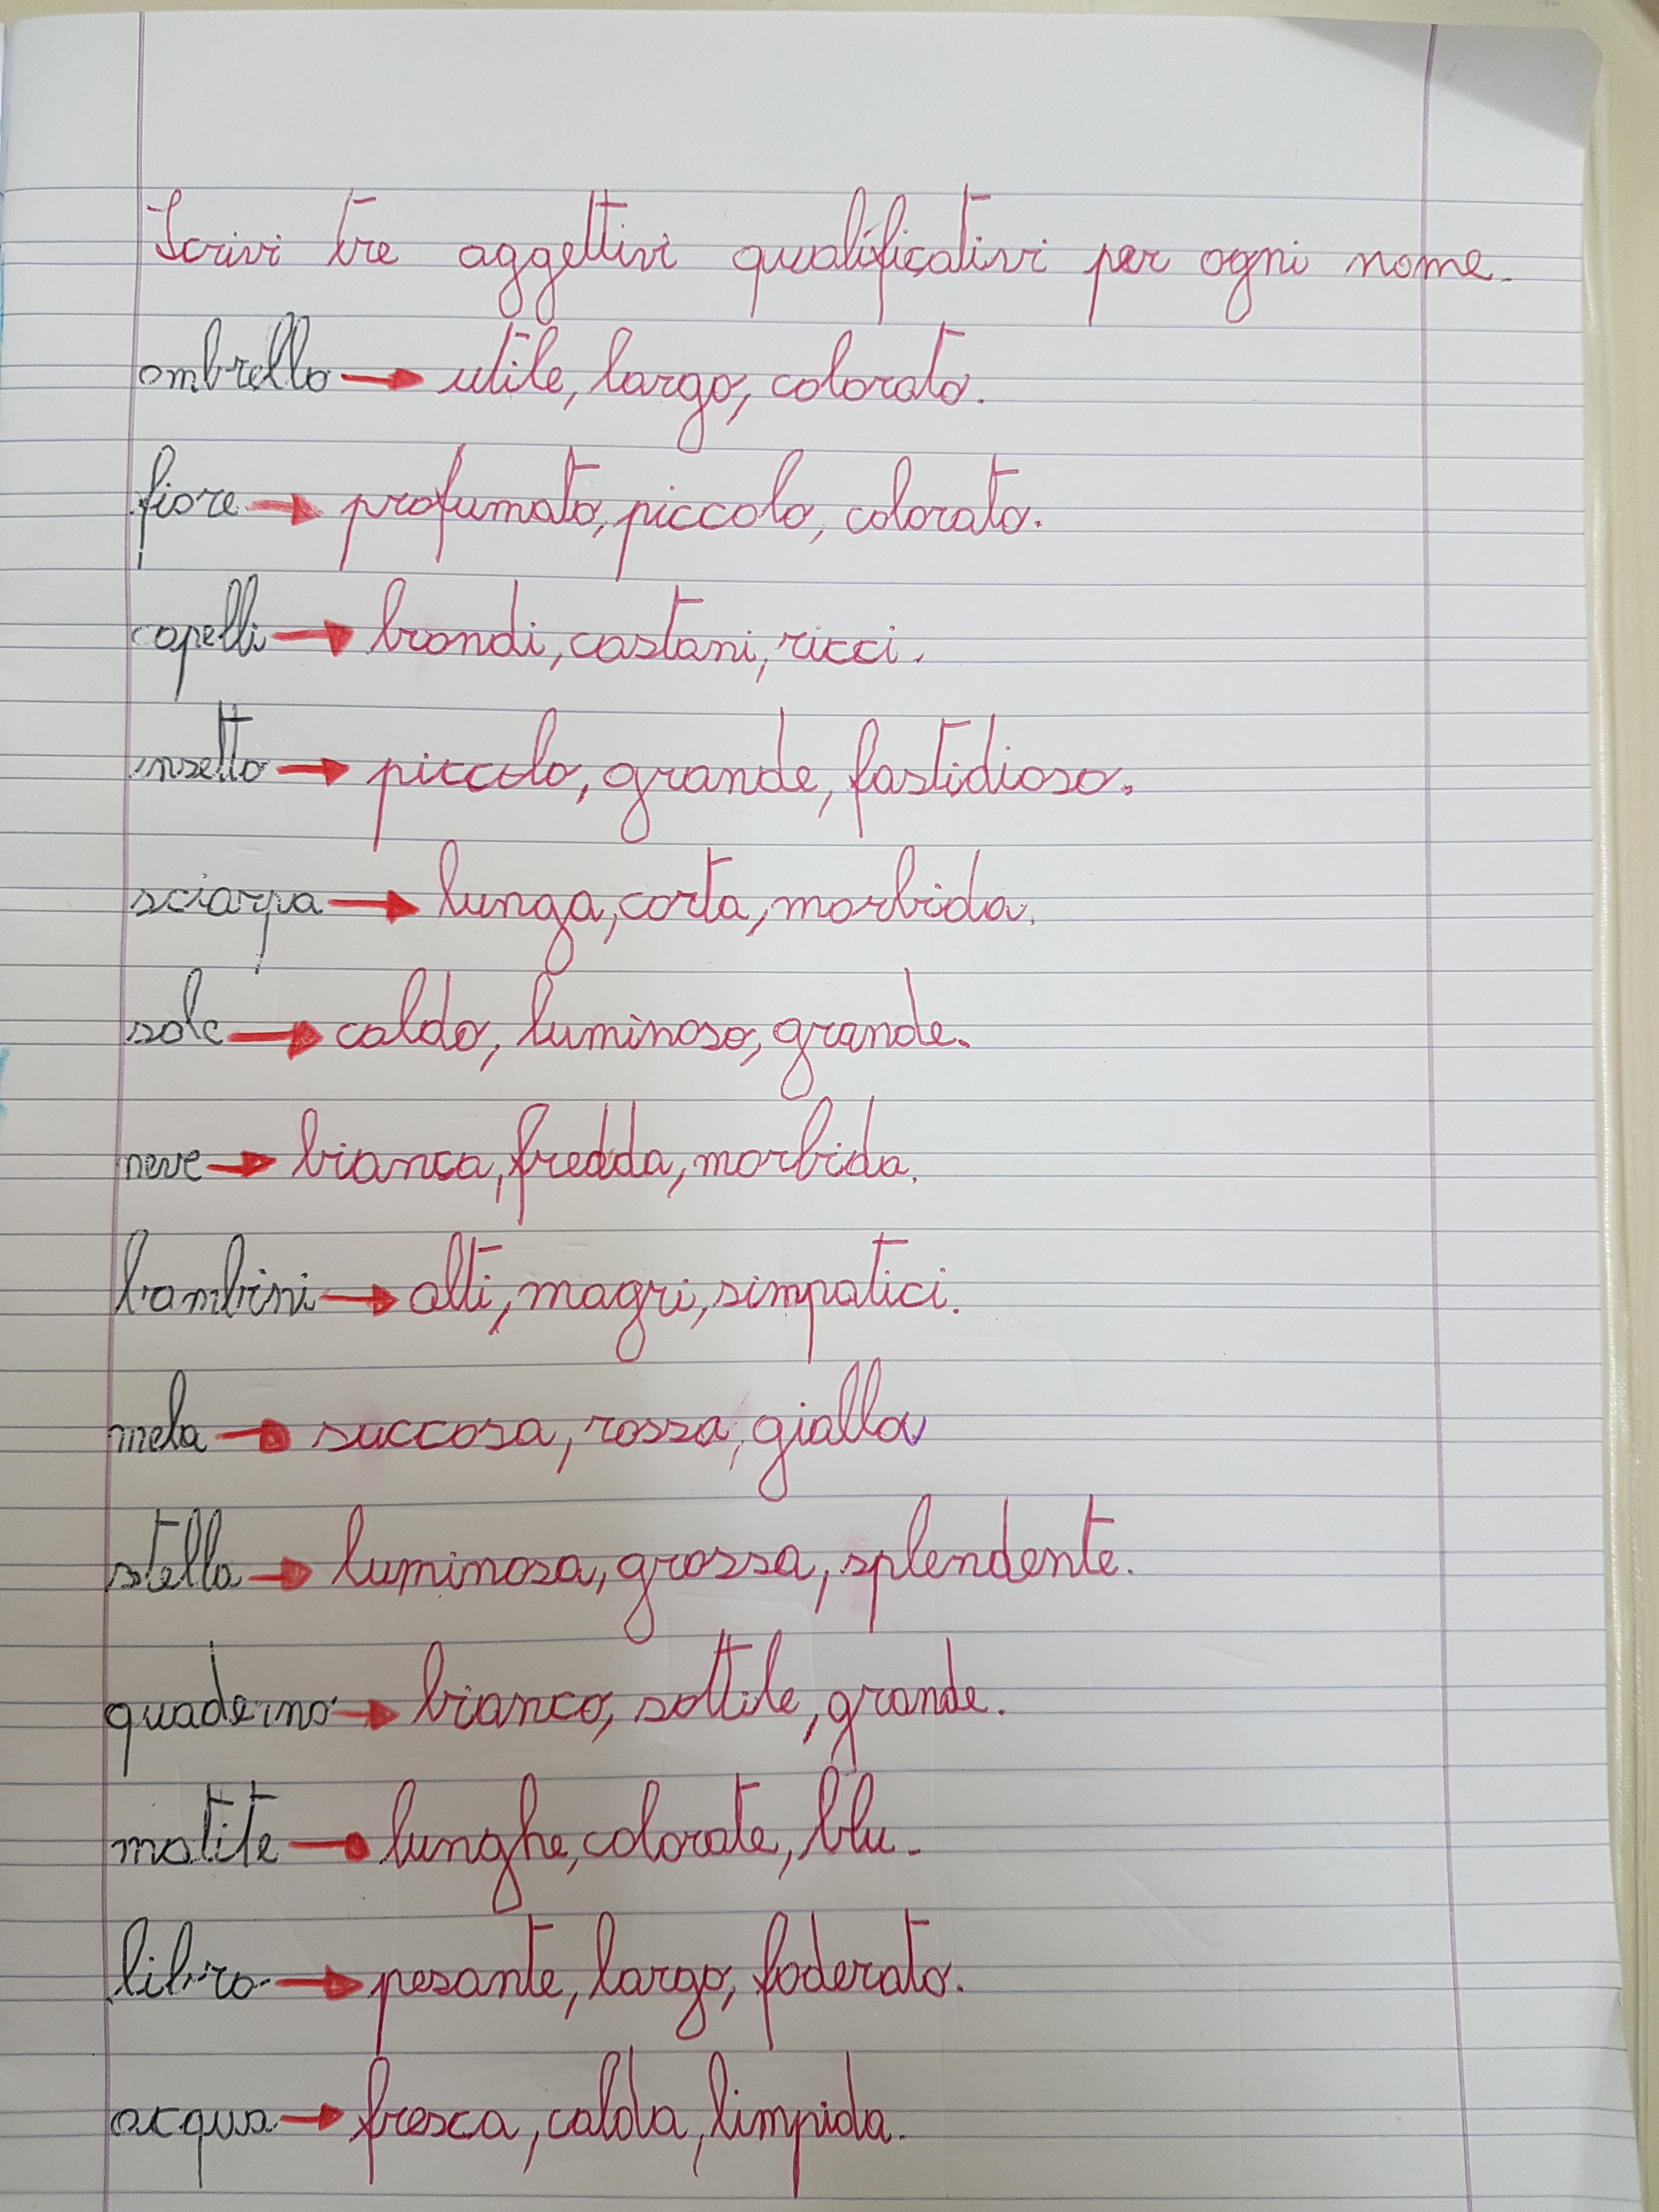 Scrivi tre aggettivi qualificativi per ogni nome.
ombrello → utile, largo, colorato.
fiore → profumato, piccolo, colorato.
capelli → biondi, castani, ricci.
insetto → piccolo, grande, fastidioso.
sciarpa → lunga, corta, morbida.
sole → caldo, luminoso, grande.
neve → bianca, fredda, morbida.
bambini → alti, magri, simpatici.
mela → succosa, rossa, gialla
stella → luminosa, grossa, splendente.
quaderno → bianco, sottile, grande.
matite → lunghe, colorate, blu.
libro → pesante, largo, foderato.
acqua → fresca, calda, limpida.